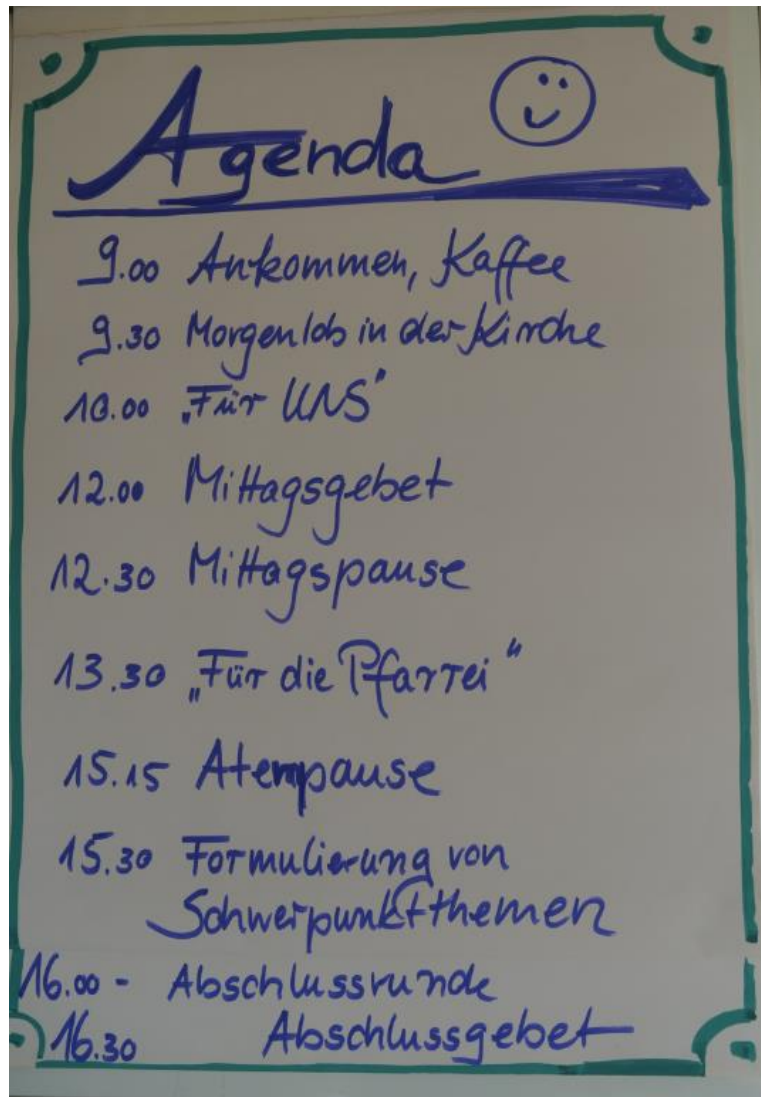 Agenda
9.00 Ankommen, Kaffee
9.30 Morgenlob in der Kirche
10.00 „Für UNS"
12.00 Mittagsgebet
12.30 Mittagspause
13.30 „Für die Pfarrei"
15.15 Atempause
15.30 Formulierung von
Schwerpunktthemen
16.00 - Abschlussrunde
16.30 Abschlussgebet